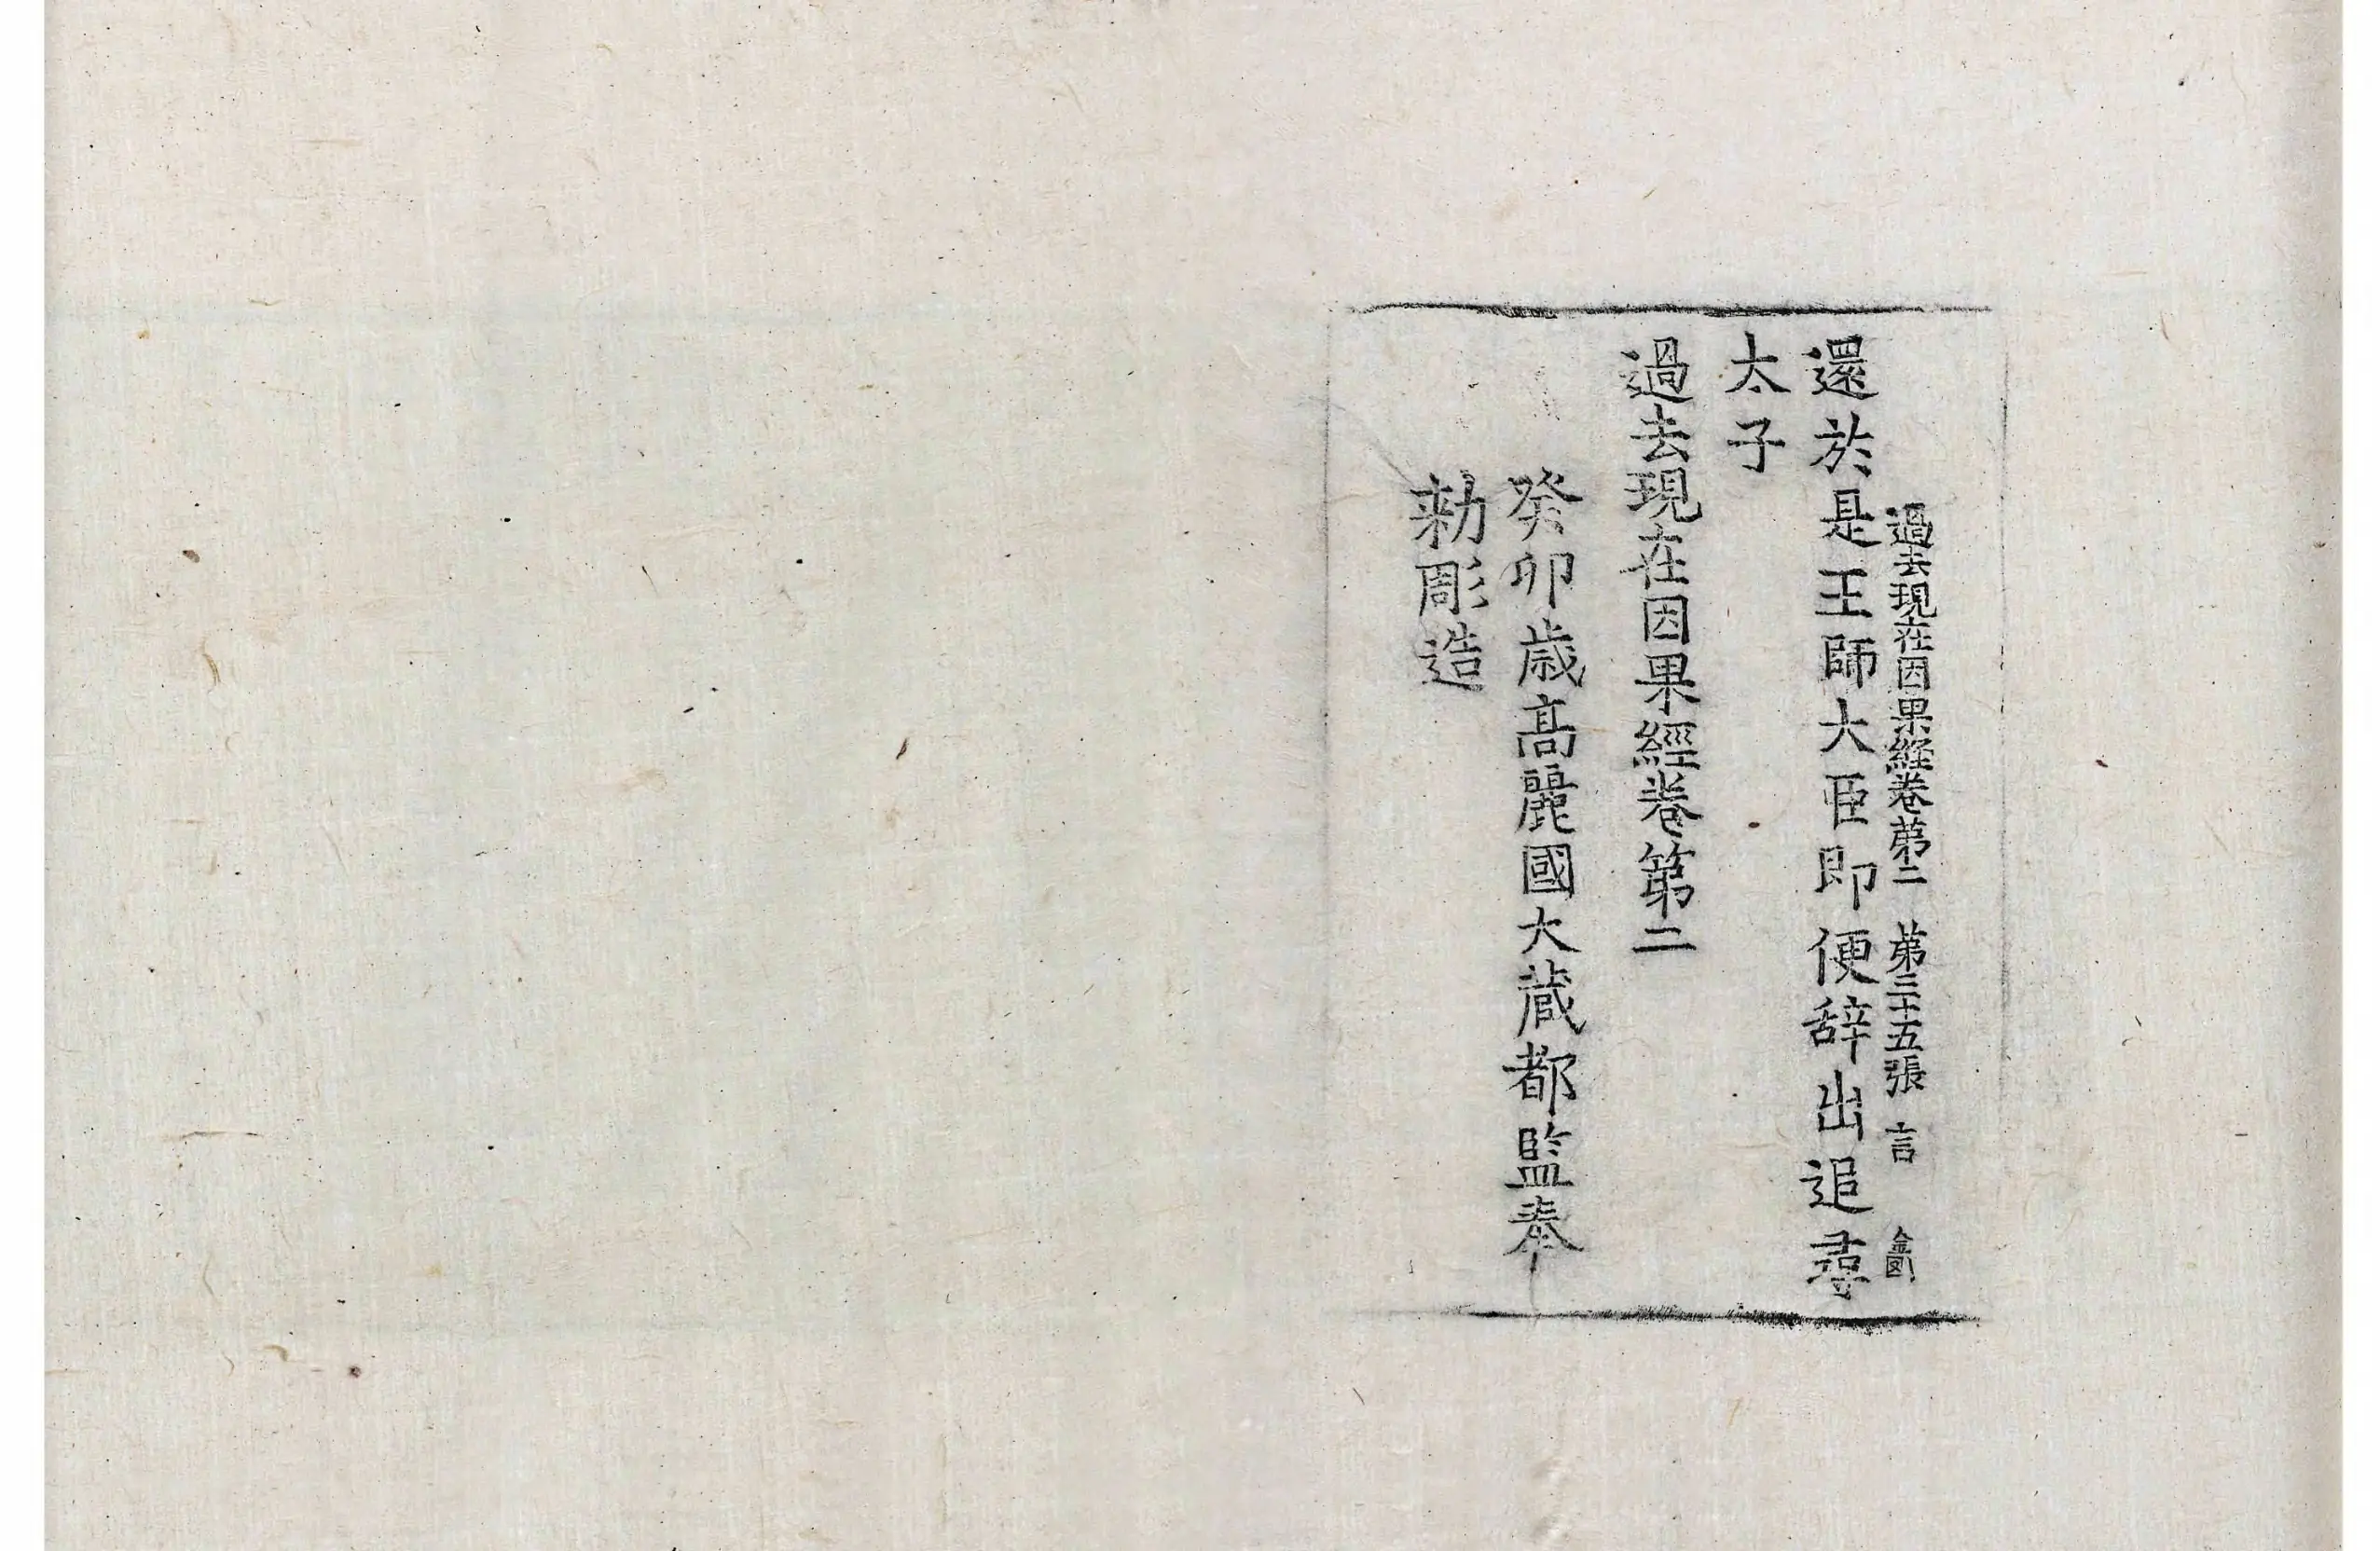 過去現在因果経卷第二　第三十五張　言
還於是王師大臣即便辞出追尋
太子
過去現在因果經卷第二
癸卯歳高麗國大蔵都監奉
勅彫造